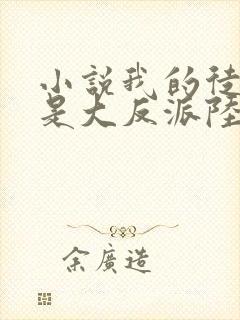 小說我的徒
是大反派陸
余廣造